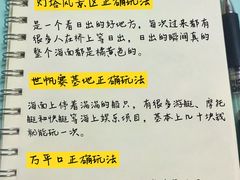 灯塔风景区正确玩法
是一个看日出的好地方,每次过来都有
很多人在桥上等日出,日出的瞬间真的
整个海面都是橘黄色的。
世帆赛基地正确玩法
海面上停着满满的船只,有很多游艇、摩托
艇和快艇等海上娱乐项目,基本上几十块钱
就能玩一次。
万平口正确玩法